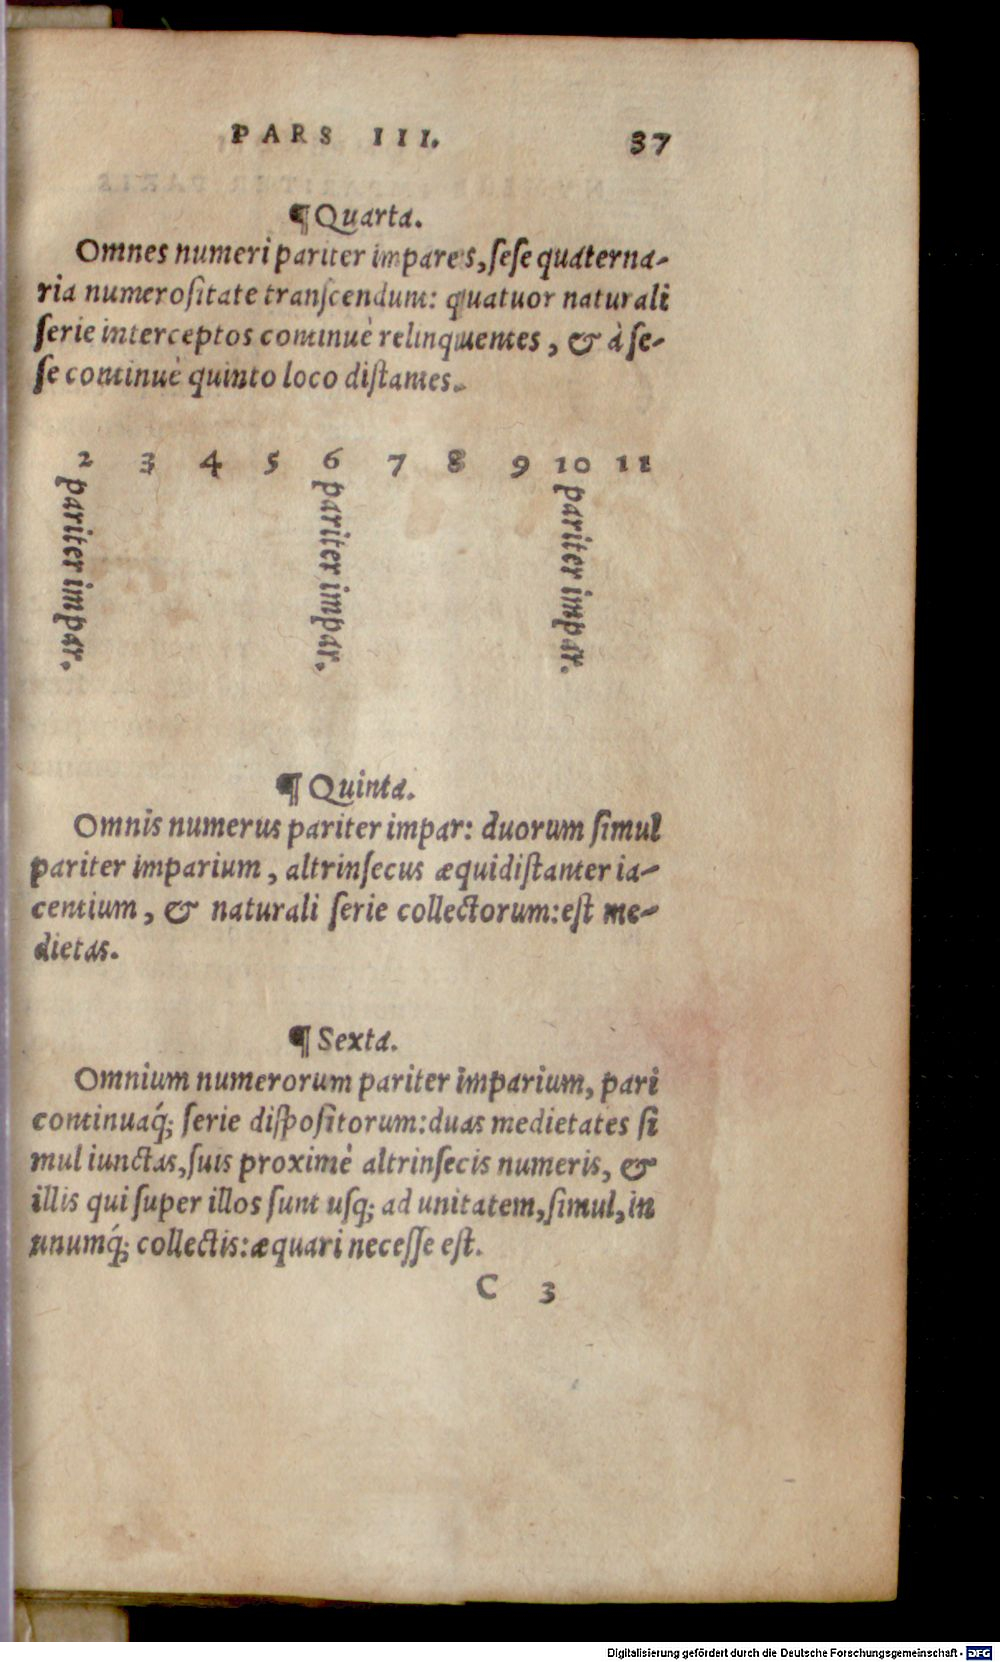 PARS III. 37
¶ Quarta.
Omnes numeri pariter impares, ſeſe quaterna-
ria numeroſitate tranſcendunt: quatuor naturali
ſerie interceptos continuè relinquentes, & à ſe-
ſe continuè quinto loco diſtantes.
2 3 4 5 6 7 8 9 10 11
pariter impar. pariter impar. pariter impar.
¶ Quinta.
Omnis numerus pariter impar: duorum ſimul
pariter imparium, altrinſecus æquidiſtanter ia-
centium, & naturali ſerie collectorum: eſt me-
dietas.
¶ Sexta.
Omnium numerorum pariter imparium, pari
continuaq́; ſerie diſpoſitorum: duas medietates ſi
mul iunctas, ſuis proximè altrinſecis numeris, &
illis qui ſuper illos ſunt uſq; ad unitatem, ſimul, in
unumq́; collectis: æquari neceſſe eſt.
C 3
Digitalisierung gefördert durch die Deutsche Forschungsgemeinschaft - DFG